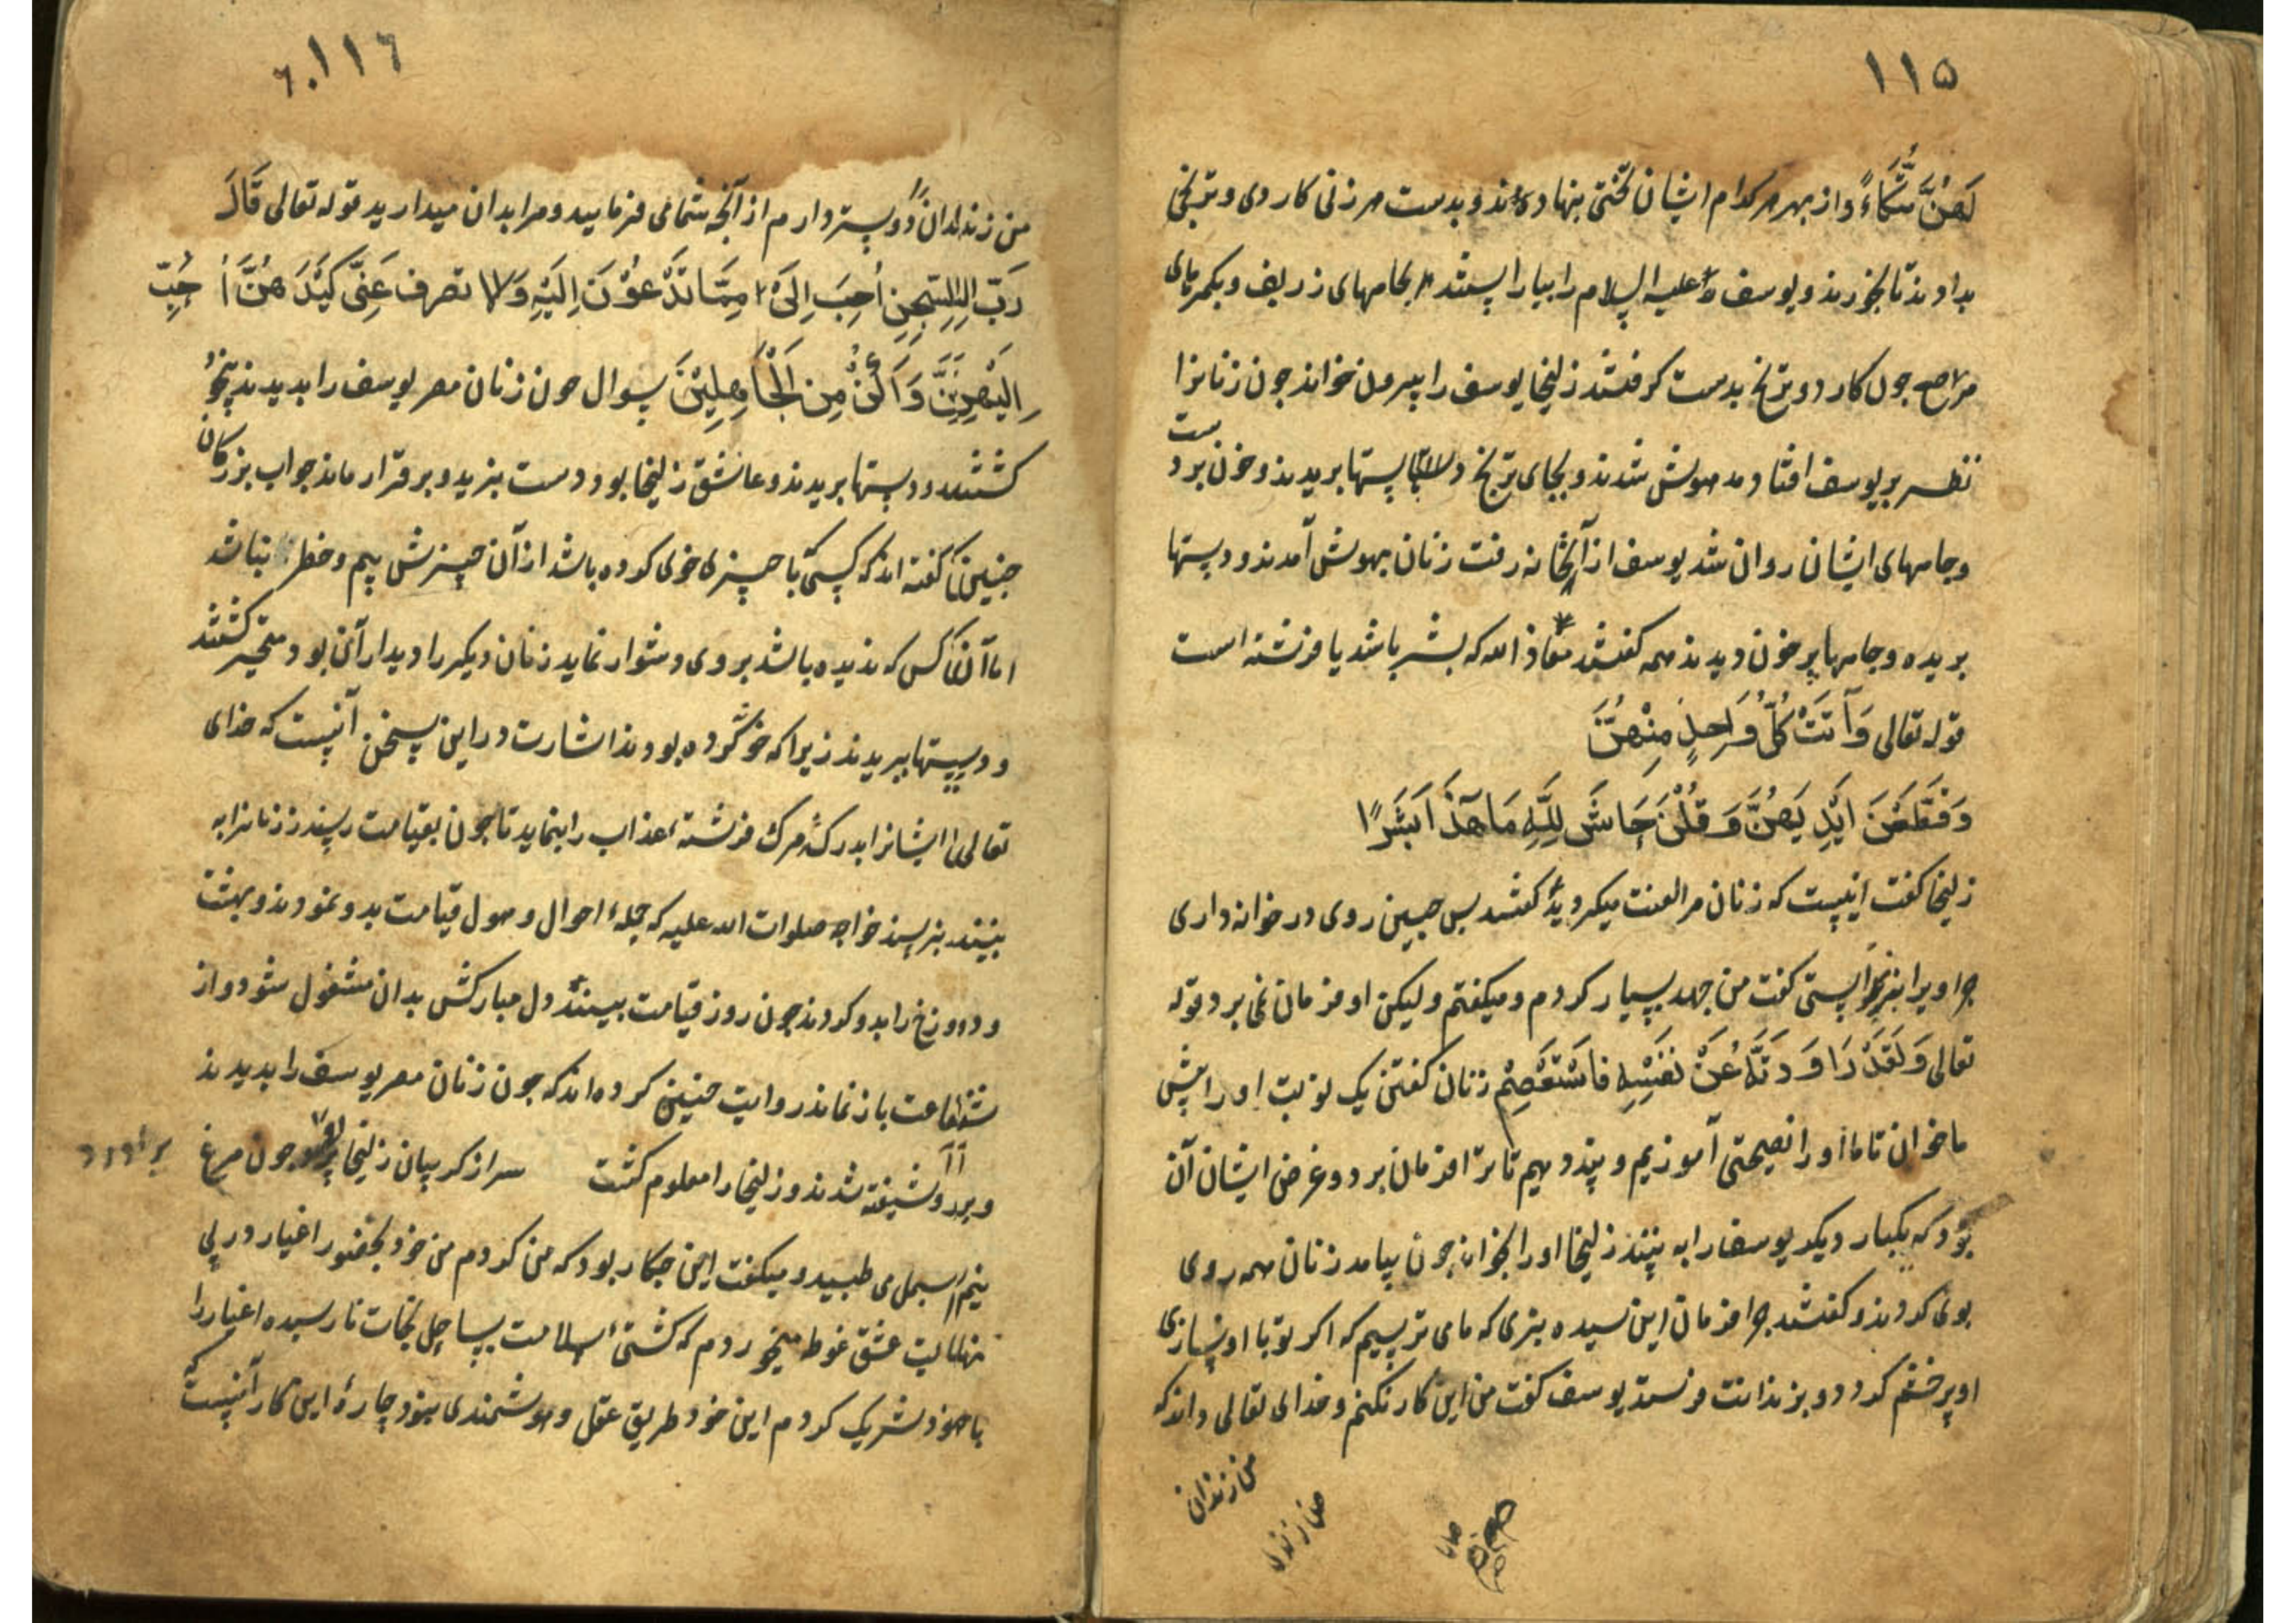 ۱۱۵
لَهُنَّ مُتَّكَاءً و از بهر هر کدام ایشان تختی بنهادند و بدست هر زنی کاردی و ترنجی
بدادند تا بخورند و یوسف علیه السلام را بیاراستند بجامهای زریف و بکمرهای
مرصع جون کارد و ترنج بدست کرفتند زلیخا یوسف را بیرون خواند جون زنانرا
نظر بر یوسف افتاد مدهوش شدند و بجای ترنج دستها بریدند و خون بر دست
و جامهای ایشان روان شد یوسف از آنخانه رفت زنان بهوش آمدند و دستها
بریده و جامها پر خون دیدند همه کفتند معاذ الله که بشر باشد یا فرشته است
قوله تعالی وَآتَتْ كُلَّ وَاحِدٍ مِنْهُنَّ
وَقَطَّعْنَ اَيْدِيَهُنَّ وَقُلْنَ حَاشَ لِلَّهِ مَا هَذَا بَشَرًا
زلیخا کفت اینست که زنان مرا لعنت میکردید کفتند بس جبین روی در خوانه داری
جرا ویرا بنخواستی کفت من جهد بسیار کردم و میکفتم و لیکن او فرمان نمی برد قوله
تعالی وَلَقَدْ رَاوَدتُّهُ عَنْ نَفْسِهِ فَاسْتَعْصَمَ زنان کفتن یک نوبت او را پیش
ما خوان تا ما او را نصیحتی آموزیم و پند دهیم تا ترا فرمان برد و غرض ایشان آن
بود که یکبار دیکر یوسف را به بینند زلیخا او را بخواند جون بیامد زنان همه روی
بوی کردند و کفتند جرا فرمان این سیده نبری که ما می ترسیم که اکر تو با او نسازی
او بر خشم کردد و بزندانت فرستد یوسف کفت من این کار نکنم و خدای تعالی داند که
من زندان
من زندان
۱۱۶
من زندان دوستر دارم از آنچه شما می فرمایید و مرا بدان میدارید قوله تعالی قَالَ
رَبِّ السِّجْنُ اَحَبُّ اِلَىَّ مِمَّا تَدْعُوْنَ اِلَيْهِ وَالا تصرف عَنِّى كَيْدَهُنَّ اَصْبُ
اِلَيْهِنَّ وَاَكُنْ مِنَ الْجَاهِلِيْنَ سوال جون زنان مصر یوسف را بدیدند بیخود
کشتند و دستها بریدند و عاشق زلیخا بود دست نبرید و برقرار ماند جواب بزرکان
جنین کفته اند که کسی با جیزی خوی کرده باشد از آن چیزش بیم و خطر نباشد
اما آن کس که ندیده باشد بروی دشوار نماید زنان دیکر را دیدار آن بود متحیر کشتند
و دستها ببریدند زیرا که خو نکرده بودند اشارت در این سخن آنست که خدای
تعالی ایشانرا بدرک مرک فرشته عذاب را بنماید تا جون بقیامت رسند زنانرا به
بینند بنرسند خواجه صلوات الله علیه که جمله احوال و هول قیامت بدو نمودند و بهشت
و دوزخ را بدو کردند جون روز قیامت ببینند دل مبارکش بدان مشغول شود و از
شفاعت باز نماند روایت جنین کرده اند که جون زنان مصر یوسف را بدیدند
و بر او شیفته شدند و زلیخا را معلوم کشت سر از کریبان زلیخا جون مرغ
بر آورد
نیم بسمل می طبید و میکفت این جکار بود که من کردم من خود بحضور اغیار در پی
عشق غوط میخوردم که کشتی سلامت بساحل نجات نارسیده اغیار را
با خود شریک کردم این خود طریق عقل و هوشمندی نبود چارهٔ این کار آنست که